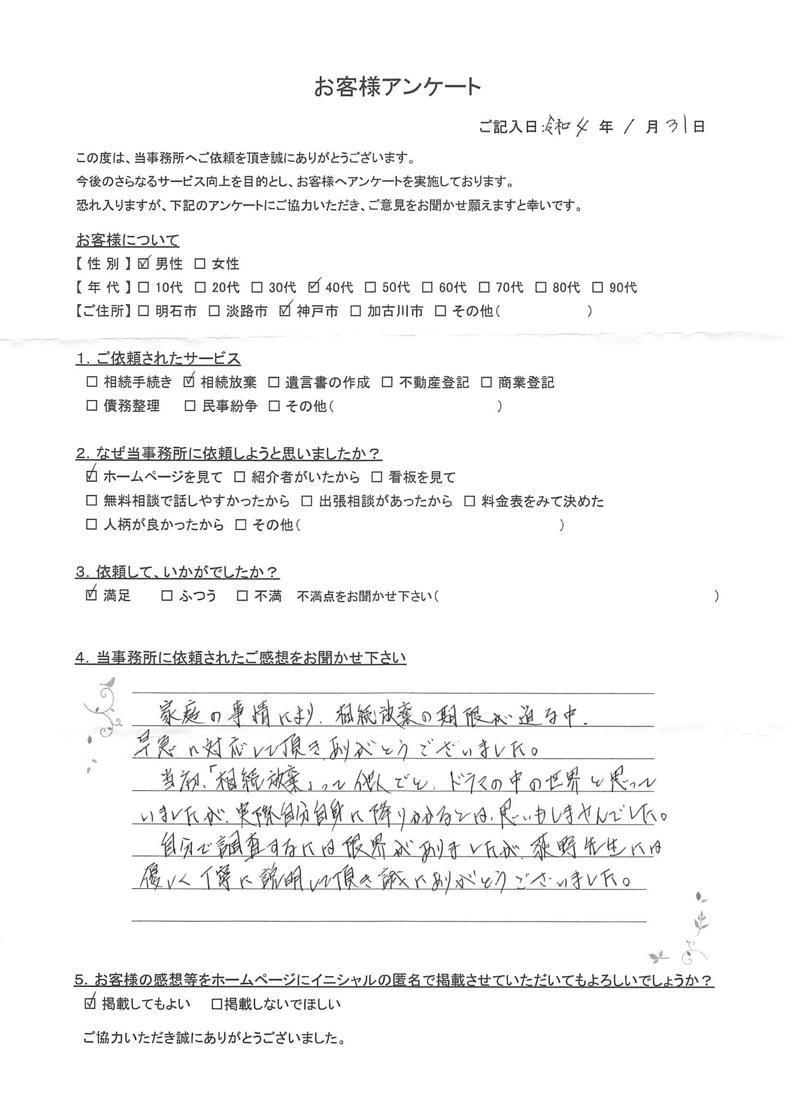 お客様アンケート
ご記入日:令和4年1月31日
この度は、当事務所へご依頼を頂き誠にありがとうございます。
今後のさらなるサービス向上を目的とし、お客様へアンケートを実施しております。
恐れ入りますが、下記のアンケートにご協力いただき、ご意見をお聞かせ願えますと幸いです。
お客様について
【性別】☑男性 □女性
【年代】□10代 □20代 □30代 ☑40代 □50代 □60代 □70代 □80代 □90代
【ご住所】□明石市 □淡路市 ☑神戸市 □加古川市 □その他( )
1. ご依頼されたサービス
□相続手続き ☑相続放棄 □遺言書の作成 □不動産登記 □商業登記
□債務整理 □民事紛争 □その他( )
2. なぜ当事務所に依頼しようと思いましたか?
☑ホームページを見て □紹介者がいたから □看板を見て
□無料相談で話しやすかったから □出張相談があったから □料金表をみて決めた
□人柄が良かったから □その他( )
3. 依頼して、いかがでしたか?
☑満足 □ふつう □不満 不満点をお聞かせ下さい( )
4. 当事務所に依頼されたご感想をお聞かせ下さい
家庭の事情により、相続放棄の期限が迫る中、
早急に対応して頂きありがとうございました。
当初、「相続放棄」って他人ごと、ドラマの中の世界と思って
いましたが、実際自分自身に降りかかるとは、思いもしませんでした。
自分で調査するには限界がありましたが、荻野先生には
優しく丁寧に説明して頂き誠にありがとうございました。
5. お客様の感想等をホームページにイニシャルの匿名で掲載させていただいてもよろしいでしょうか?
☑掲載してもよい □掲載しないでほしい
ご協力いただき誠にありがとうございました。